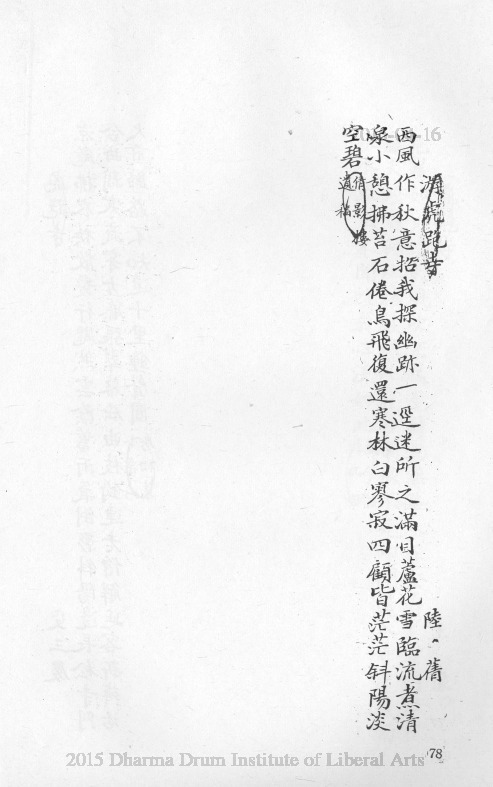 游虎跑寺
陸·蒨
西風作秋意招我探幽跡一逕迷所之滿目蘆花雪臨流煮清
泉小憩拂苔石倦鳥飛復還寒林白寥寂四顧皆茫茫斜陽淡
空碧
倩影樓
遺稿
16
78
2015 Dharma Drum Institute of Liberal Arts